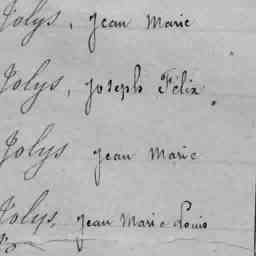 Jolys, Jean Marie
Jolys, Joseph Félix
Jolys Jean Marie
Jolys, Jean Marie Louis